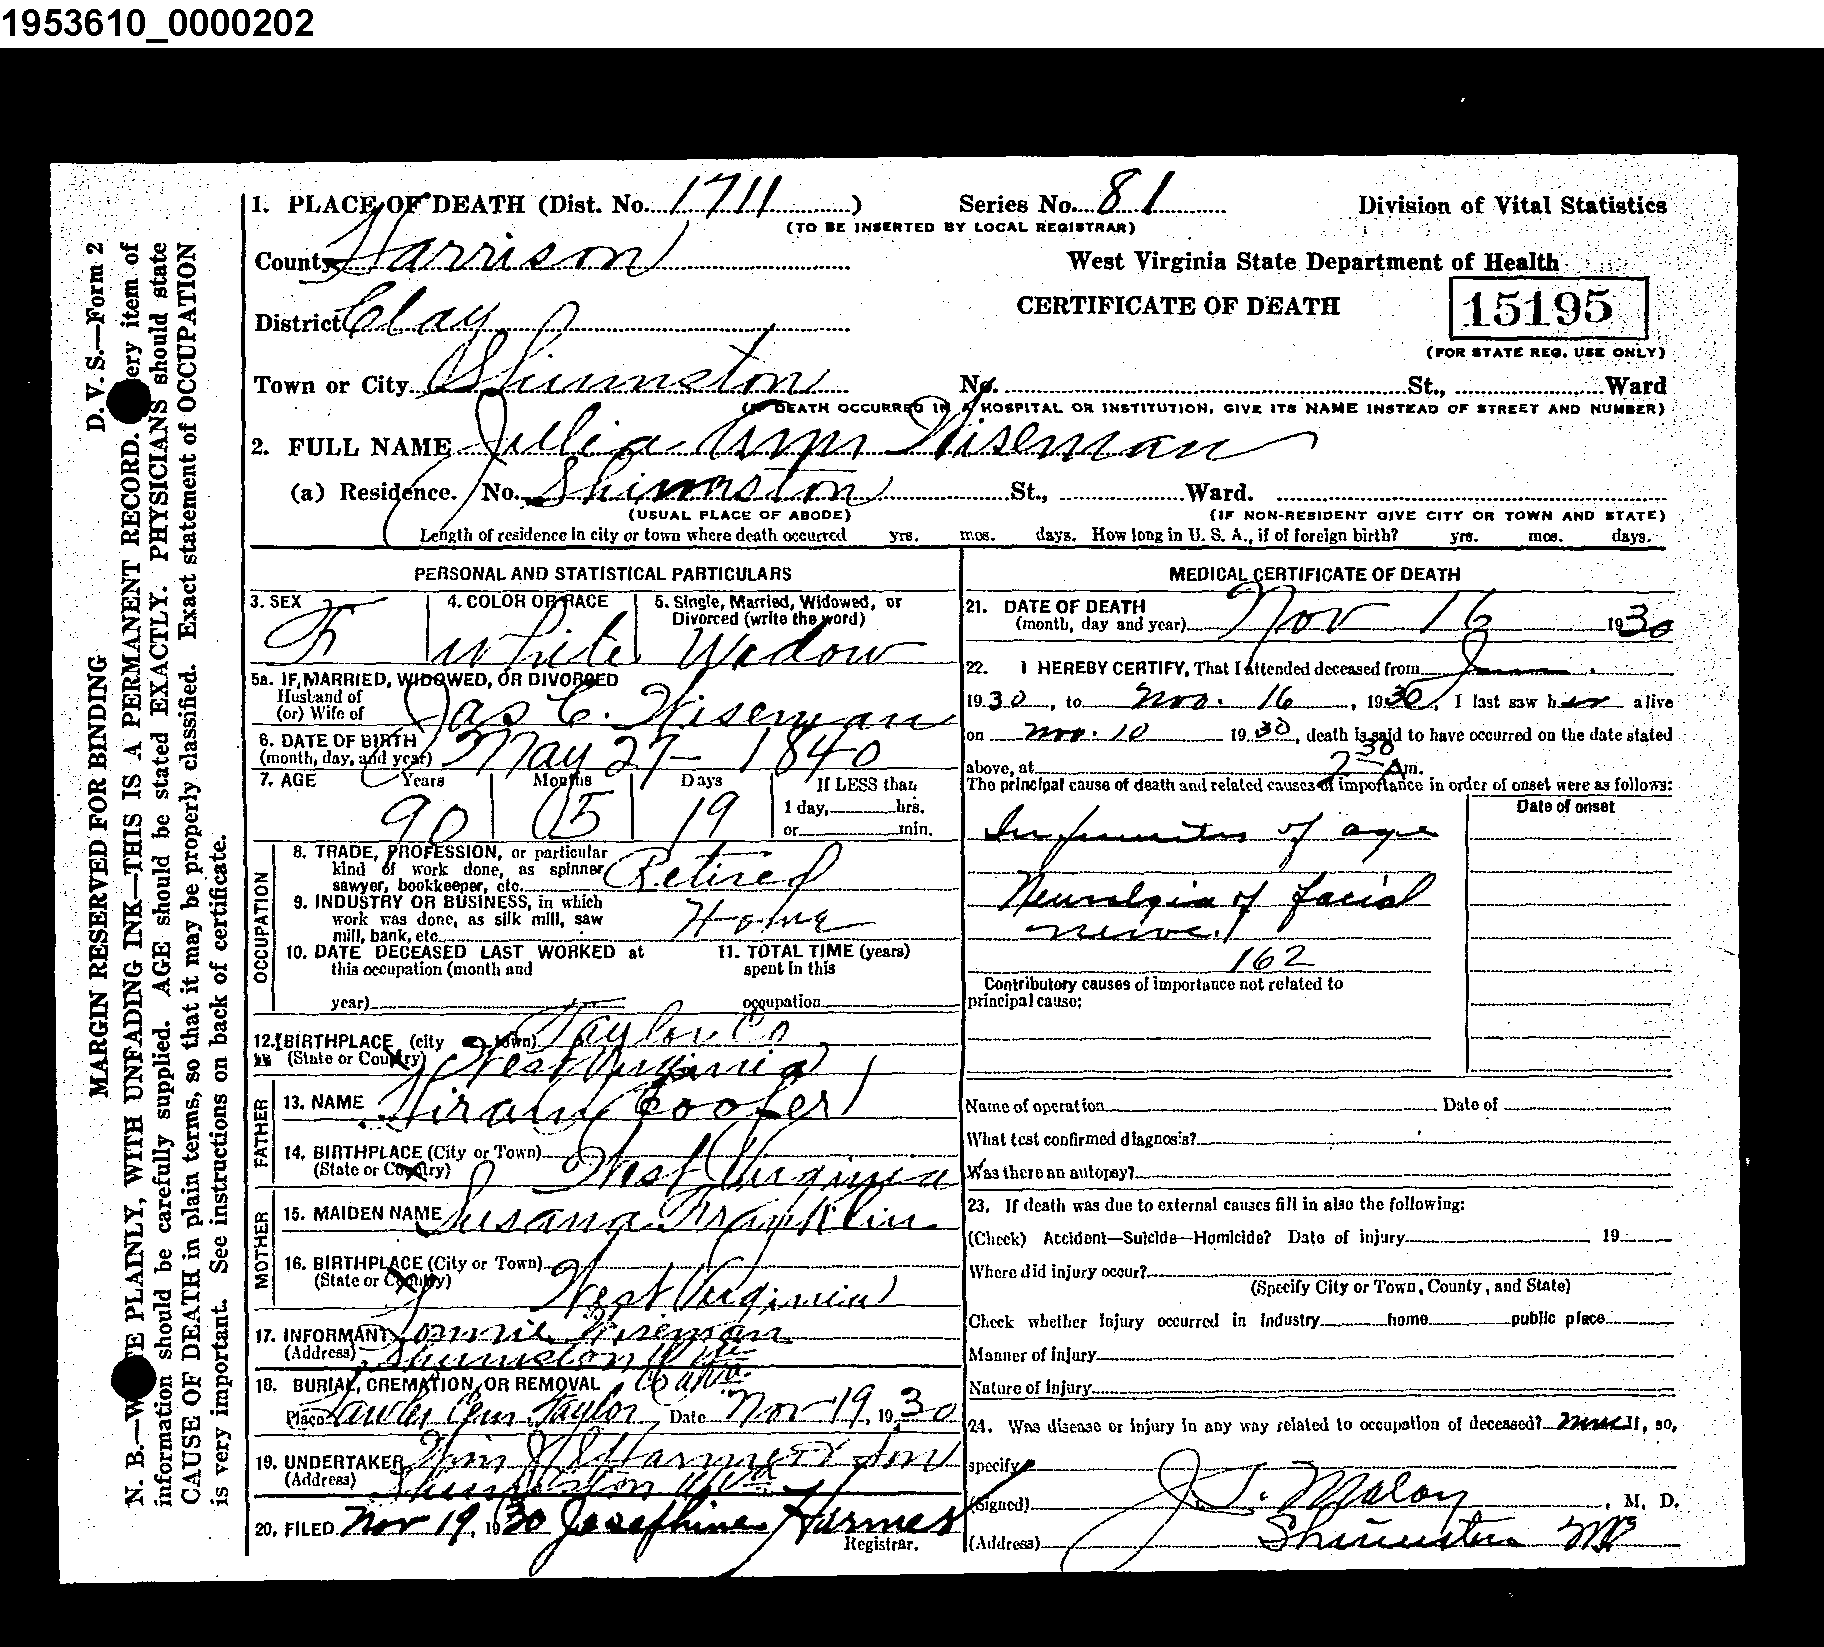 1953610_0000202
1. PLACE OF DEATH (Dist. No. 1711 ) Series No. 81 Division of Vital Statistics
(TO BE INSERTED BY LOCAL REGISTRAR)
County Harrison West Virginia State Department of Health
District Clay CERTIFICATE OF DEATH 15195
(FOR STATE REG. USE ONLY)
Town or City Shinnston No. St., Ward
(IF DEATH OCCURRED IN A HOSPITAL OR INSTITUTION, GIVE ITS NAME INSTEAD OF STREET AND NUMBER)
2. FULL NAME Julia Ann Wiseman
(a) Residence. No. Shinnston St., Ward.
(USUAL PLACE OF ABODE) (IF NON-RESIDENT GIVE CITY OR TOWN AND STATE)
Length of residence in city or town where death occurred yrs. mos. days. How long in U. S. A., if of foreign birth? yrs. mos. days.
PERSONAL AND STATISTICAL PARTICULARS
3. SEX 4. COLOR OR RACE 5. Single, Married, Widowed, or
Divorced (write the word)
F White Widow
5a. IF MARRIED, WIDOWED, OR DIVORCED
Husband of
(or) Wife of Jas C. Wiseman
6. DATE OF BIRTH
(month, day, and year) May 27 - 1840
7. AGE Years Months Days If LESS than
1 day, hrs.
or min.
90 05 19
OCCUPATION
8. TRADE, PROFESSION, or particular
kind of work done, as spinner
sawyer, bookkeeper, etc. Retired
9. INDUSTRY OR BUSINESS, in which
work was done, as silk mill, saw
mill, bank, etc. Home
10. DATE DECEASED LAST WORKED at 11. TOTAL TIME (years)
this occupation (month and spent in this
year) occupation
12. BIRTHPLACE (city or town) Taylor Co
(State or Country) West Virginia
FATHER
13. NAME Hiram Coofer
14. BIRTHPLACE (City or Town)
(State or Country) West Virginia
MOTHER
15. MAIDEN NAME Susana Franklin
16. BIRTHPLACE (City or Town)
(State or Country) West Virginia
17. INFORMANT Wiseman
(Address) Shinnston W Va
18. BURIAL, CREMATION, OR REMOVAL
Place Cem. Taylor Date Nov 19, 1930
19. UNDERTAKER Harmer & Son
(Address) Shinnston W Va
20. FILED Nov 19, 1930 Josephine Harmer
Registrar.
MEDICAL CERTIFICATE OF DEATH
21. DATE OF DEATH
(month, day and year) Nov 16 1930
22. I HEREBY CERTIFY, That I attended deceased from
1930, to Nov. 16, 1930, I last saw her alive
on Nov. 10 1930, death is said to have occurred on the date stated
above, at 2 30 A m.
The principal cause of death and related causes of importance in order of onset were as follows:
Date of onset
Infirmities of age
Neuralgia of facial
nerve.
162
Contributory causes of importance not related to
principal cause:
Name of operation Date of
What test confirmed diagnosis?
Was there an autopsy?
23. If death was due to external causes fill in also the following:
(Check) Accident—Suicide—Homicide? Date of injury 19
Where did injury occur?
(Specify City or Town, County, and State)
Check whether injury occurred in industry home public place
Manner of injury
Nature of injury
24. Was disease or injury in any way related to occupation of deceased? If, so,
specify
(Signed) , M. D.
(Address) Shinnston
D. V. S.—Form 2
MARGIN RESERVED FOR BINDING
N. B.—WRITE PLAINLY, WITH UNFADING INK—THIS IS A PERMANENT RECORD. Every item of
information should be carefully supplied. AGE should be stated EXACTLY. PHYSICIANS should state
CAUSE OF DEATH in plain terms, so that it may be properly classified. Exact statement of OCCUPATION
is very important. See instructions on back of certificate.